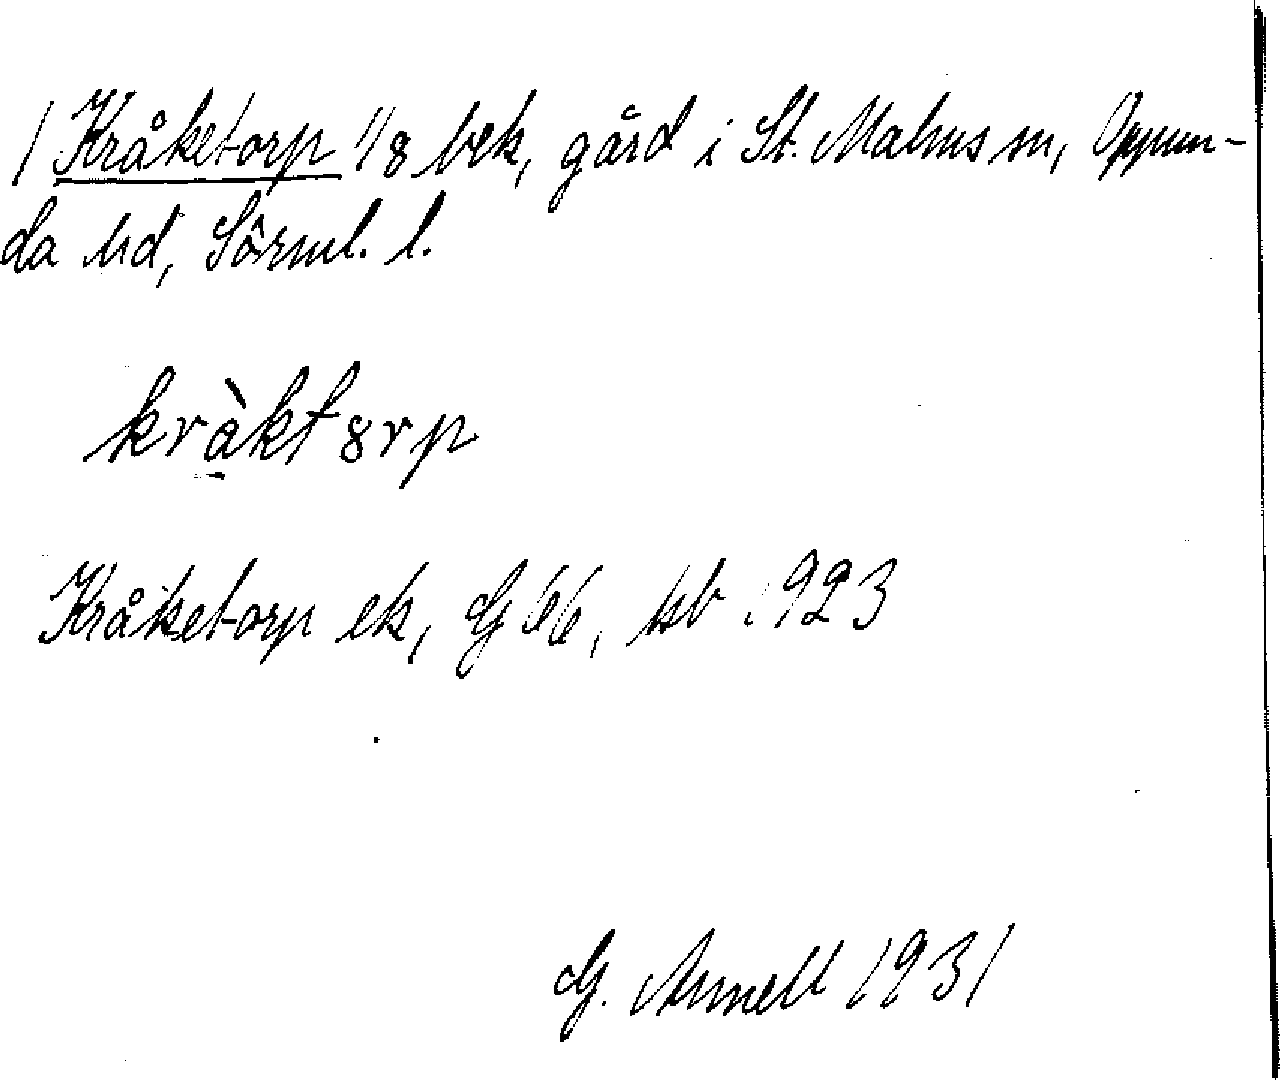 1 Kråketorp 1/8 bek, gård i St. Malms sn, Oppun-
da hd, Sörml. l.
kràktȣrp
Kråketorp ek, G 66, kb 1923
G. Armell 1931